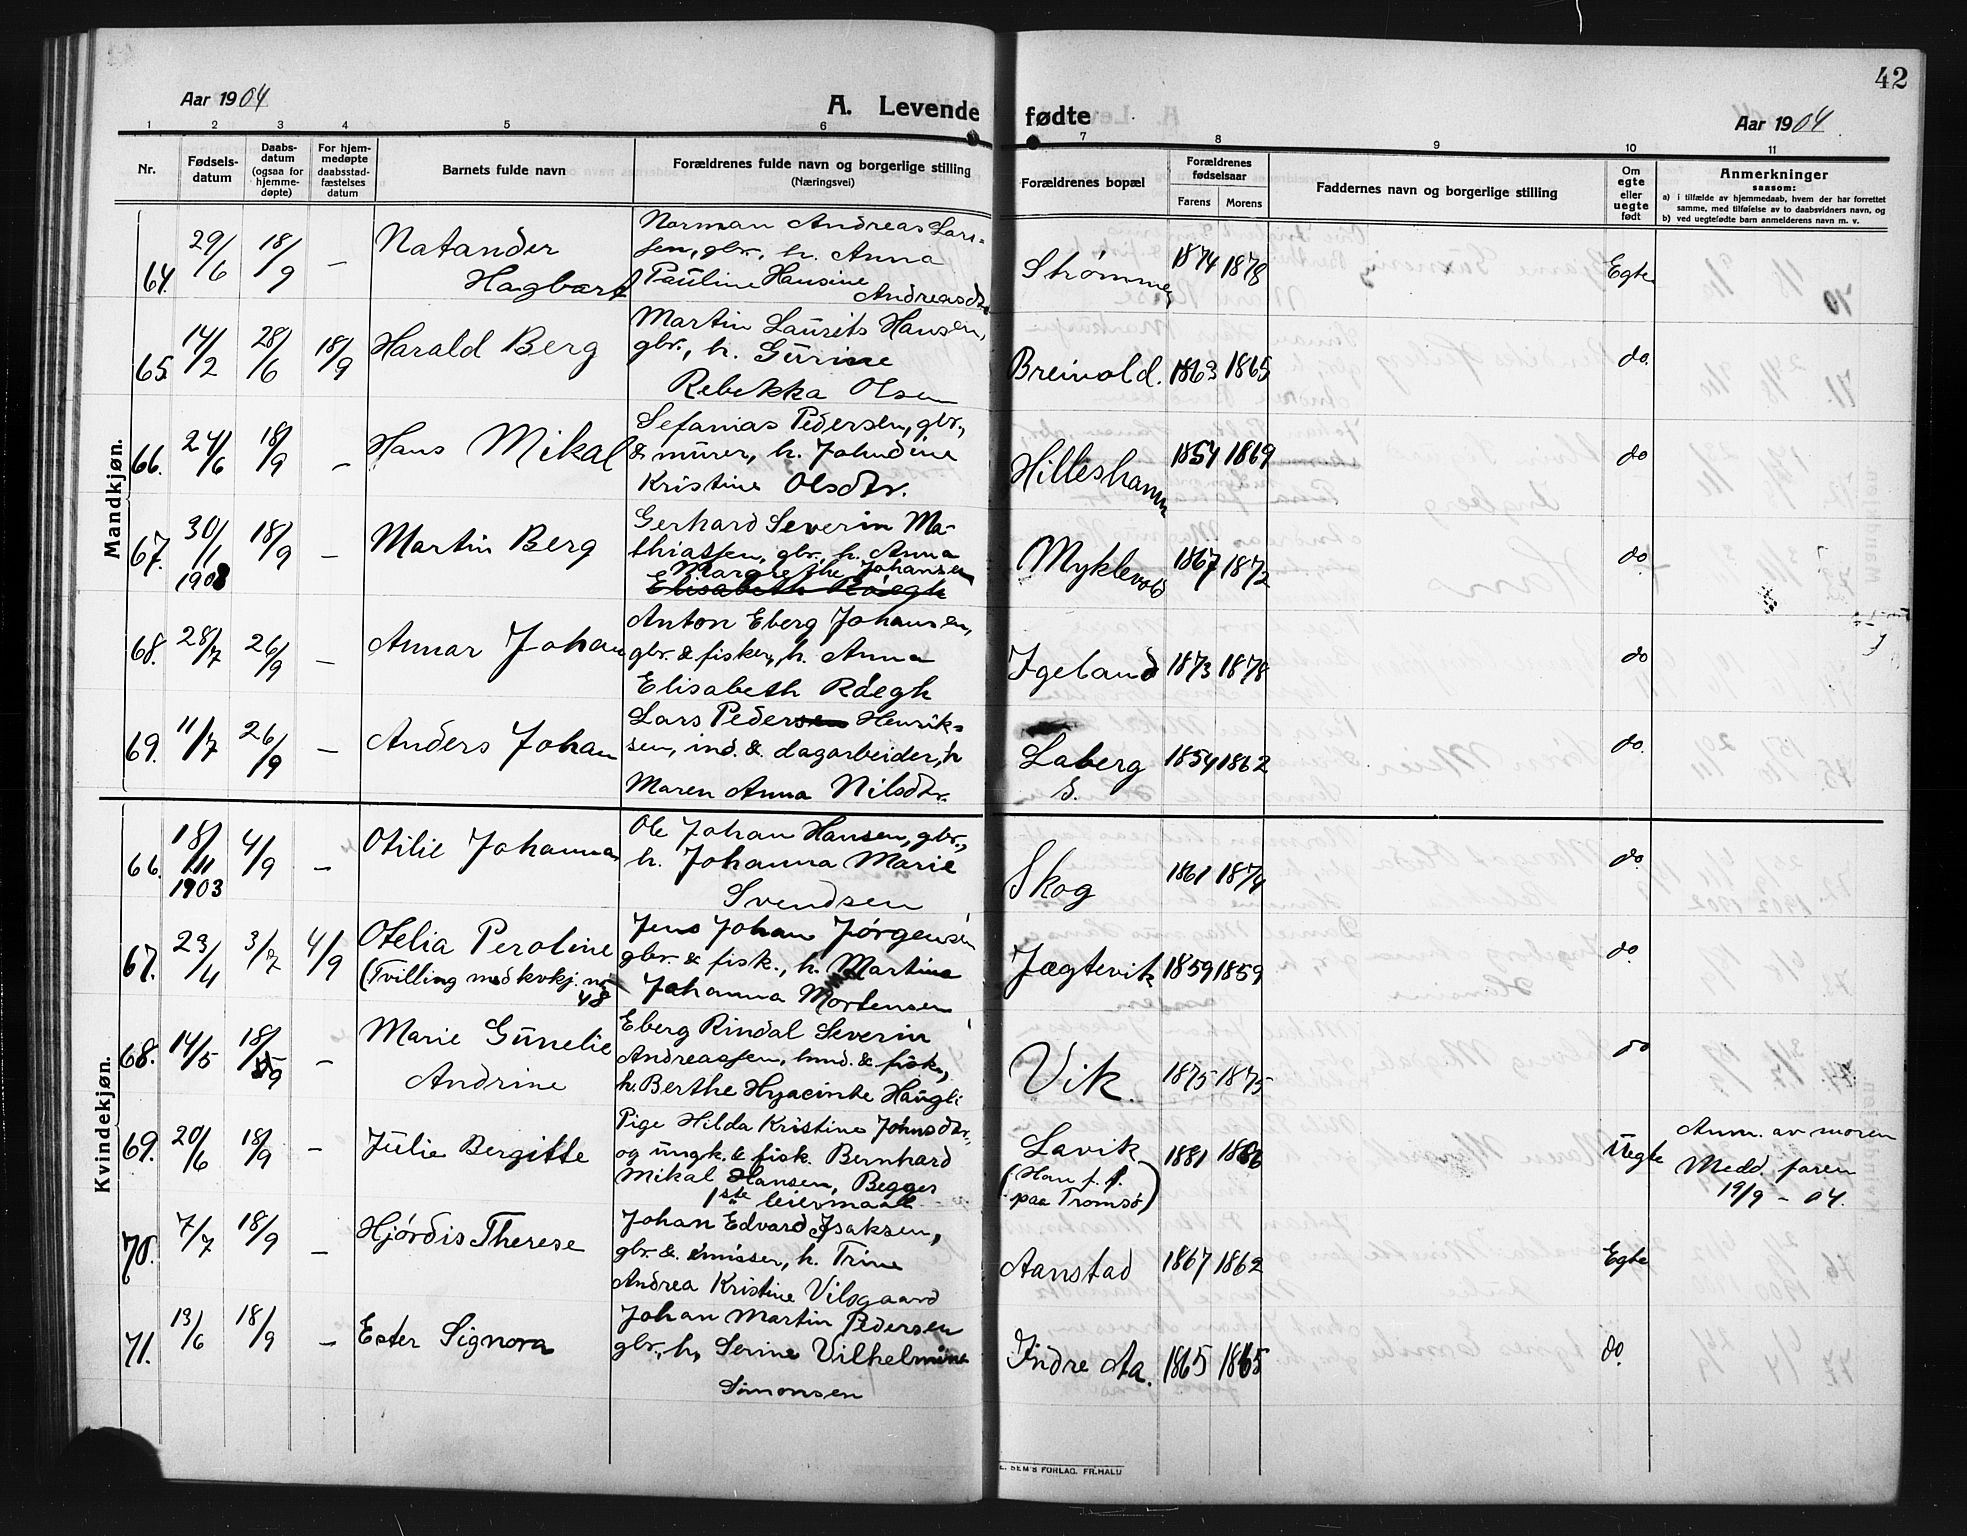 42
Aar 1904
A. Levende fødte
Aar 1904
1 2 3 4 5 6 7 8 9 10 11
Nr.
Fødsels-
datum
Daabs-
datum
(ogsaa for
hjemme-
døpte)
For hjem-
medøpte
daabsstad-
fæstelses
datum
Barnets fulde navn
Forældrenes fulde navn og borgerlige stilling
(Næringsvei)
Forældrenes bopæl
Forældrenes
fødselsaar
Farens Morens
Faddernes navn og borgerlige stilling
Om
egte
eller
uegte
født
Anmerkninger
saasom:
a) i tilfælde av hjemmedaab, hvem der har forrettet
samme, med tilføielse av to daabsvidners navn, og
b) ved uegtefødte barn anmelderens navn m. v.
Mandkjøn.
64. 29/6 18/9 – Natander
Hagbart
Norman Andreas Lars-
sen, gbr., h. Anna
Pauline Hansine
Andreasdtr.
Strømmes 1874 1878 Egte
65. 14/2 28/6 18/9 Harald Berg
Martin Laurits Hansen,
gbr., h. Gurine
Rebekka Olsen
Breivold. 1863 1865 do.
66. 24/6 18/9 – Hans Mikal
Sefanias Pedersen, gbr.,
& murer, h. Johndine
Kristine Olsdtr.
Hilleshamn 1854 1869 do
67. 30/1 1903 18/9 – Martin Berg
Gerhard Severin Ma-
thiassen, gbr. h. Anna
Margrethe Johansen
Elisabeth Röegh
Myklevold 1867 1872 do.
68. 28/7 26/9 – Annar Johan
Anton Eberg Johansen,
gbr. & fisker, h. Anna
Elisabeth Röegh
Igeland 1873 1878 do
69. 11/7 26/9 – Anders Johan
Lars Pedersen Henrik-
sen, ind. & dagarbeider, h
Maren Anna Nilsdtr.
Laberg
S. 1854 1862 do.
Kvindekjøn.
66. 18/11 1903 4/9 – Otilie Johanna
Ole Johan Hansen, gbr.,
h. Johanna Marie
Svendsen
Skog 1861 1874 do
67. 23/4 3/7 4/9 Otelia Peroline
(Tvilling med kvkj. nr
48
Jens Johan Jørgensen
gbr. & fisk., h. Martine
Johanna Mortensen
Jægtevik 1859 1859 do.
68. 14/5 18/9 – Marie Gunelie
Andrine
Eberg Rindal Severin
Andreassen, hmd. & fisk.,
h. Berthe Hyacinte Haugli
Vik. 1875 1875 do
69. 20/6 18/9 – Julie Bergitte
Pige Hilda Kristine Johnsdtr.
og ungk. & fisk. Bernhard
Mikal Hansen, Begges
1ste leiermaal
Lavik
(Han f. f.
paa Tromsø) 1881 1886 Uegte
Anm. av moren
Medd. faren
19/9 – 04.
70. 7/7 18/9 – Hjørdis Therese
Johan Edvard Isaksen,
gbr. & emissær, h. Trine
Andrea Kristine Vilsgaard
Aanstad 1867 1862 Egte
71. 13/6 18/9 – Ester Signora
Johan Martin Pedersen
gbr., h. Serine Vilhelmine
Simonsen
Indre Aa. 1865 1865 do.
E. SEM'S FORLAG, FR.HALD